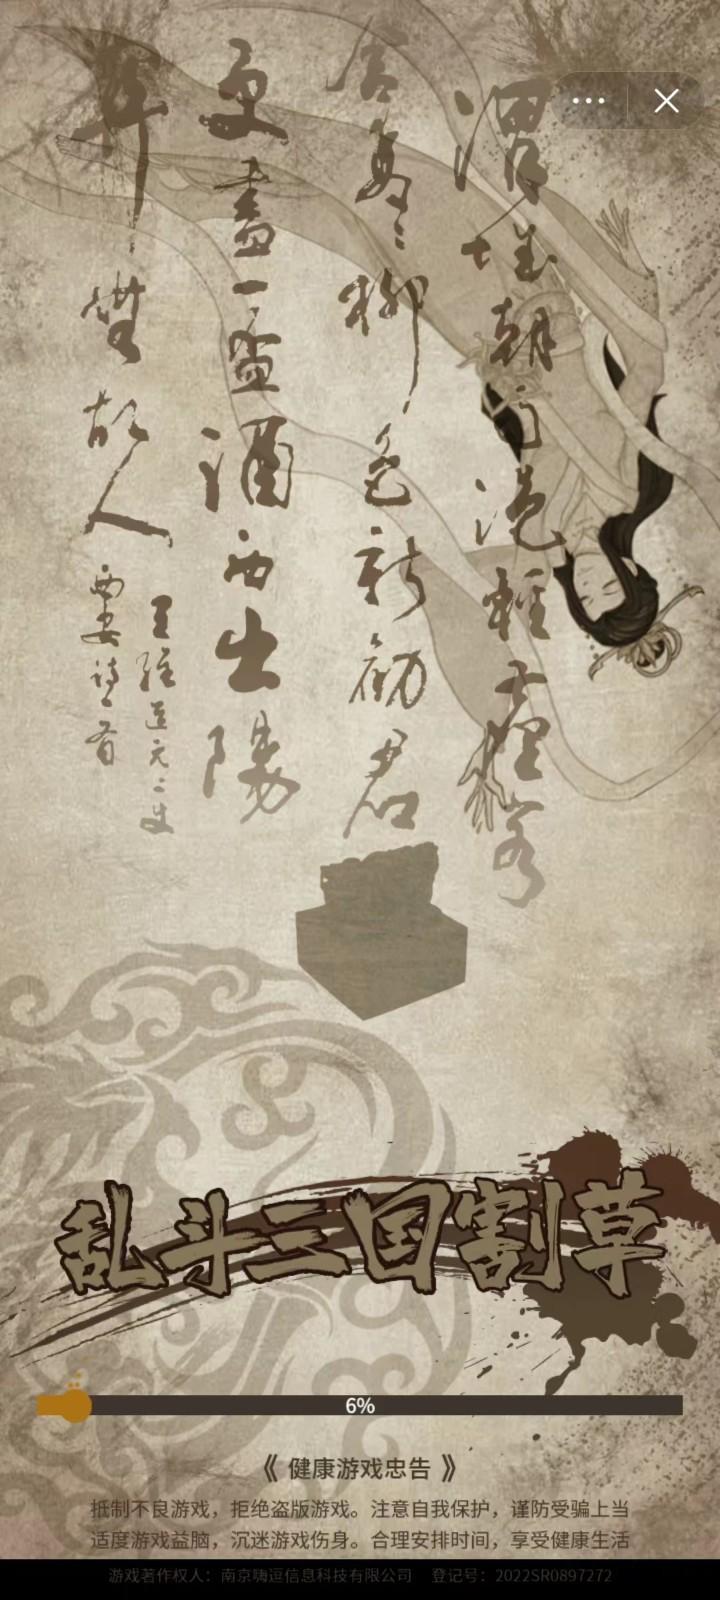 渭城朝雨浥輕塵客
舍青々柳色新勸君
更盡一盃酒西出陽
無故人
王維送元二使
乱斗三国割草
6%
《 健康游戏忠告 》
抵制不良游戏，拒绝盗版游戏。注意自我保护，谨防受骗上当
适度游戏益脑，沉迷游戏伤身。合理安排时间，享受健康生活
游戏著作权人：南京嗨逗信息科技有限公司 登记号：2022SR0897272